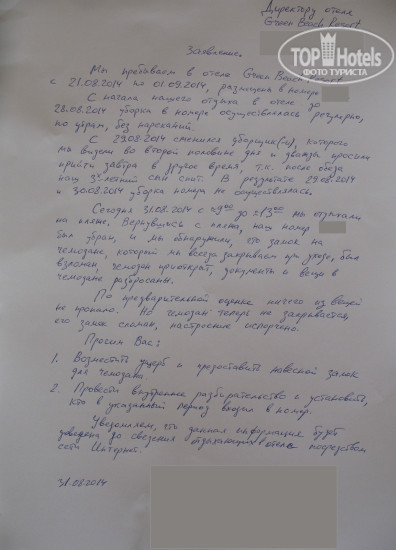 Директору отеля
Green Beach Resort
TOP Hotels
ФОТО ТУРИСТА
Заявление.
Мы пребываем в отеле Green Beach Resort
с 21.08.2014 по 01.09.2014, размещены в номере
С начала нашего отдыха в отеле до
28.08.2014 уборка в номере осуществлялась регулярно,
по утрам, без нареканий.
С 29.08.2014 сменился уборщик(-а), которого
мы видели во второй половине дня и дважды просили
прийти завтра в другое время, т.к. после обеда
наш 3-летний сын спит. В результате 29.08.2014
и 30.08.2014 уборка номера не осуществлялась.
Сегодня 31.08.2014 с 9:00 до 13:00 мы отдыхали
на пляже. Вернувшись с пляжа, наш номер
был убран, и мы обнаружили, что замок на
чемодане, который мы всегда закрываем при уходе, был
взломан, чемодан приоткрыт, документы и вещи в
чемодане разбросаны.
По предварительной оценке ничего из вещей
не пропало. Но чемодан теперь не закрывается,
его замок сломан, настроение испорчено.
Просим Вас:
1. Возместить ущерб и предоставить навесной замок
для чемодана.
2. Провести внутреннее разбирательство и установить,
кто в указанный период входил в номер.
Уведомляем, что данная информация будет
доведена до сведения отдыхающих в отеле посредством
сети Интернет.
31.08.2014